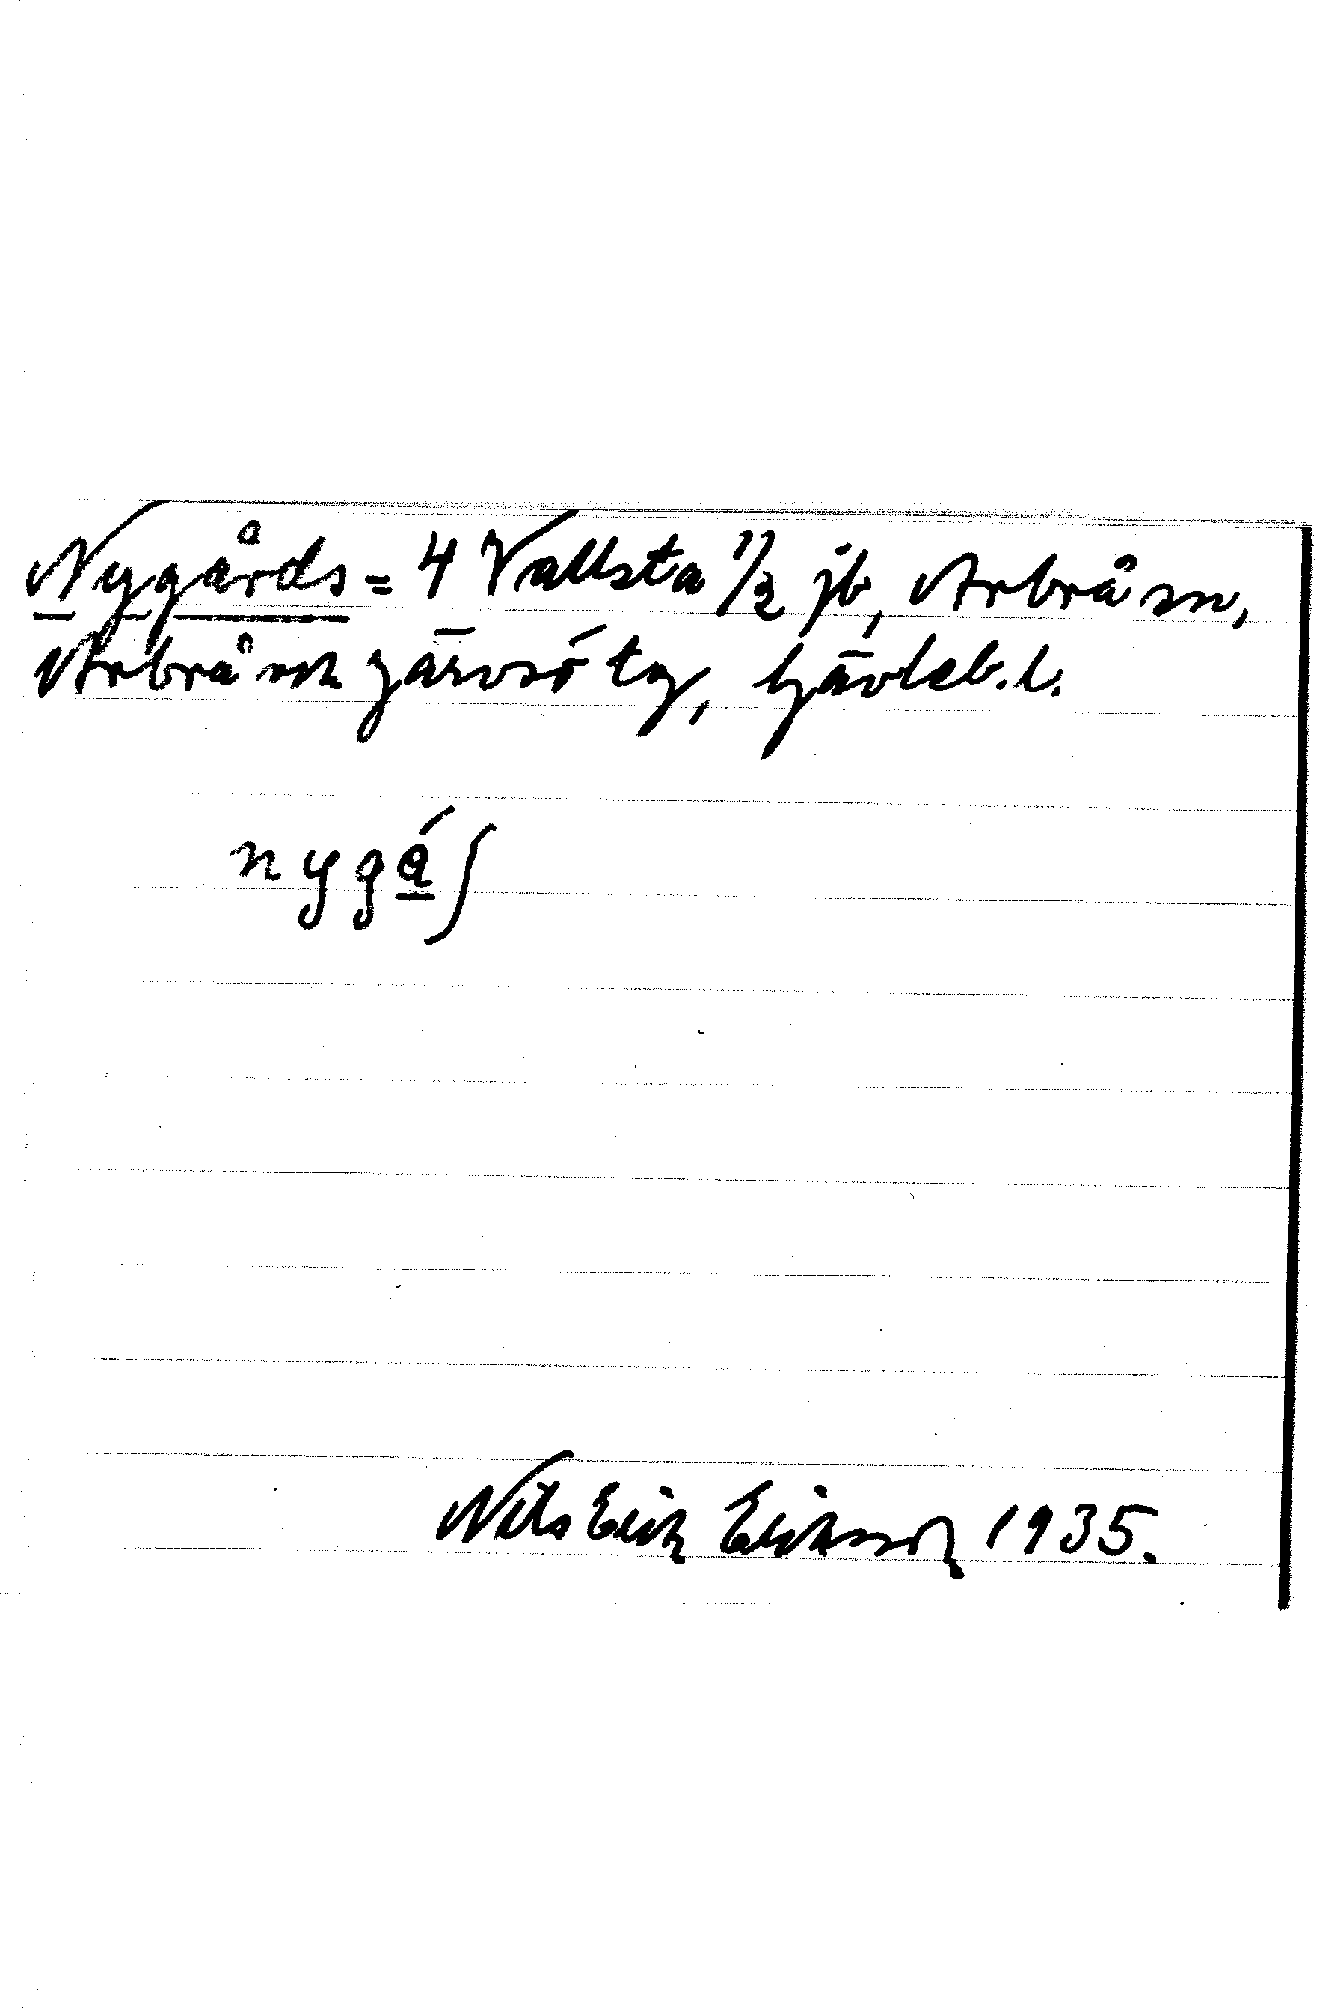 Nygårds = 4 Vallsta 1/2 jb, Arbrå sn,
Arbrå och Järvsö tg, Gävleb. l.
nygá̱ʃ
Nils Erik Eriksson 1935.